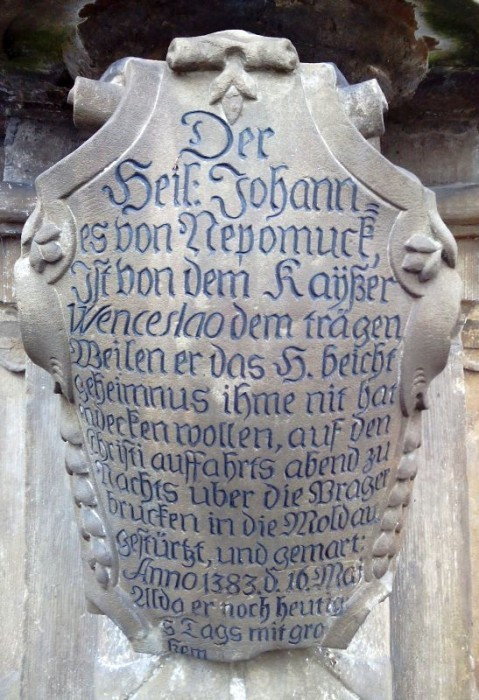 Der
Heil: Johann=
es von Nepomuck,
Ist von dem Kaÿßer
Wenceslao dem trägen
Weilen er das H. beicht
geheimnus ihme nit hat
endecken wollen, auf den
Christi auffahrts abend zu
Nachts uber die Prager
brucken in die Moldau
gestürtzt, und gemart:
Anno 1383. d. 16 Maj
Alda er noch heutig
s Tags mit gro